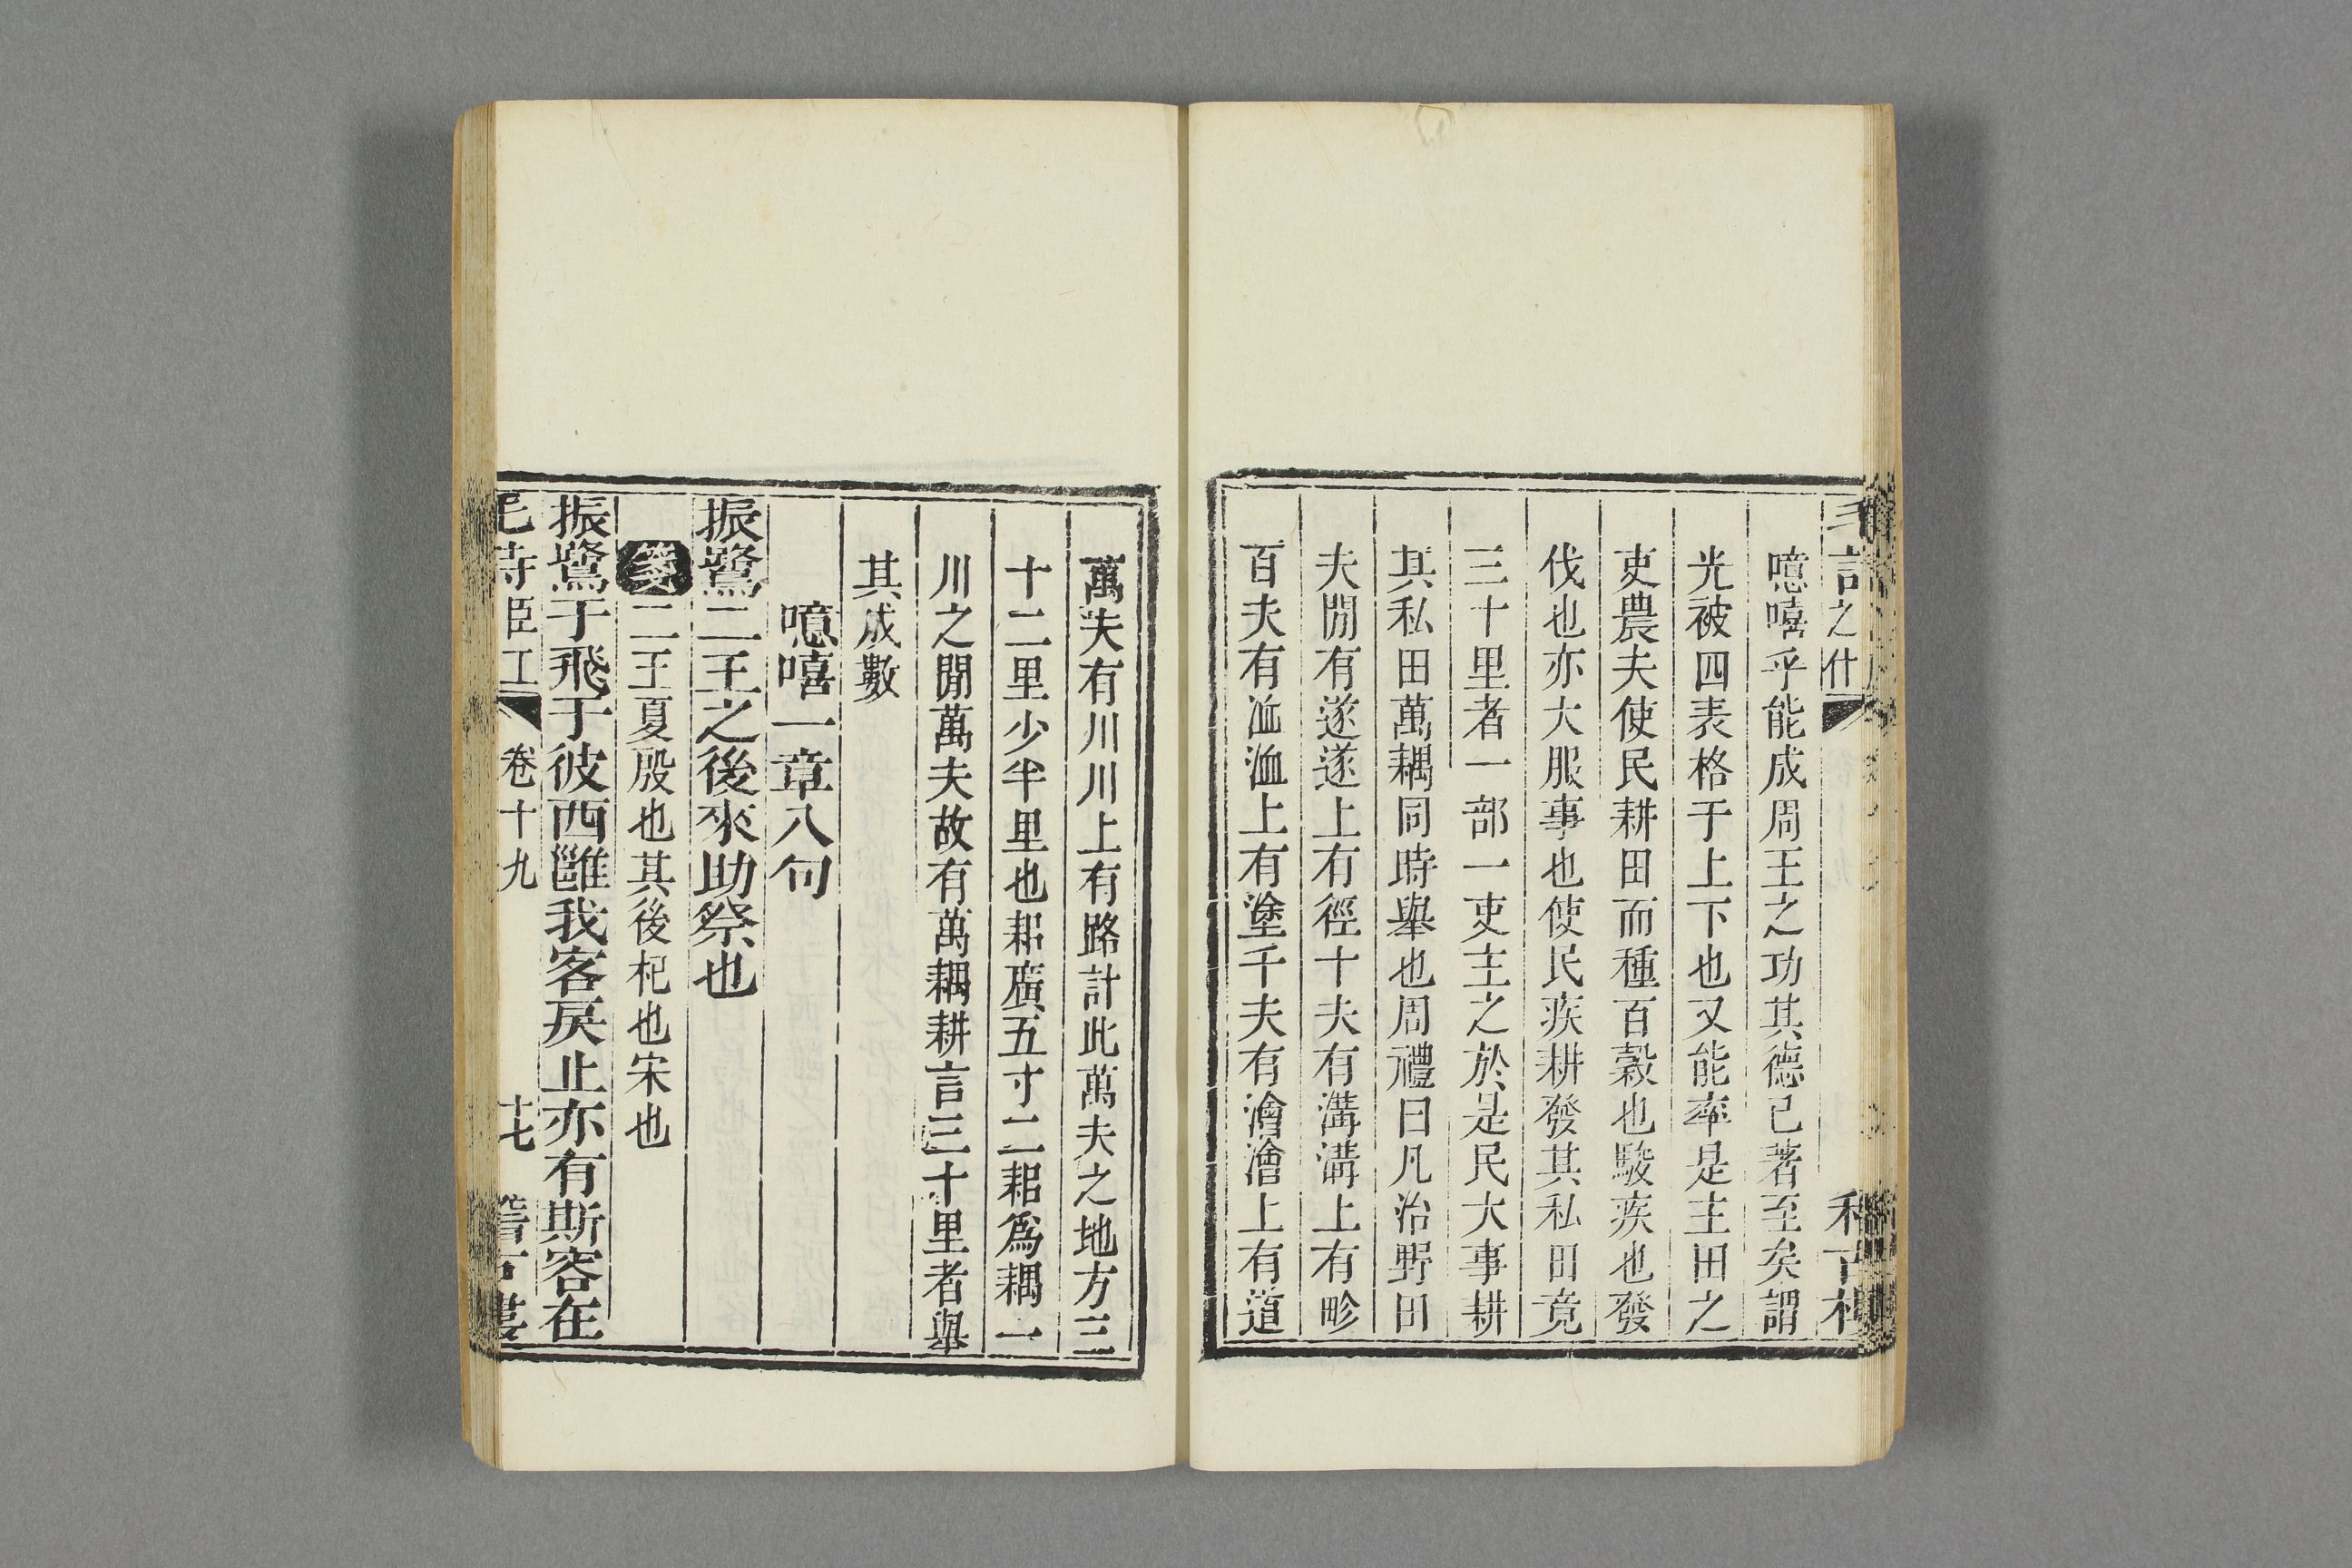 噫嘻乎能成周王之功其德已著至矣謂
光被四表格于上下也又能率是主田之
吏農夫使民耕田而種百穀也駿疾也發
伐也亦大服事也使民疾耕發其私田竟
三十里者一部一吏主之於是民大事耕
其私田萬耦同時舉也周禮曰凡治野田
夫閒有遂遂上有徑十夫有溝溝上有畛
百夫有洫洫上有塗千夫有澮澮上有道
萬夫有川川上有路計此萬夫之地方三
十二里少半里也耜廣五寸二耜爲耦一
川之閒萬夫故有萬耦耕言三十里者舉
其成數
噫嘻一章八句
振鷺二王之後來助祭也
箋二王夏殷也其後杞也宋也
振鷺于飛于彼西雝我客戾止亦有斯容在
毛詩臣工 卷十九 十七